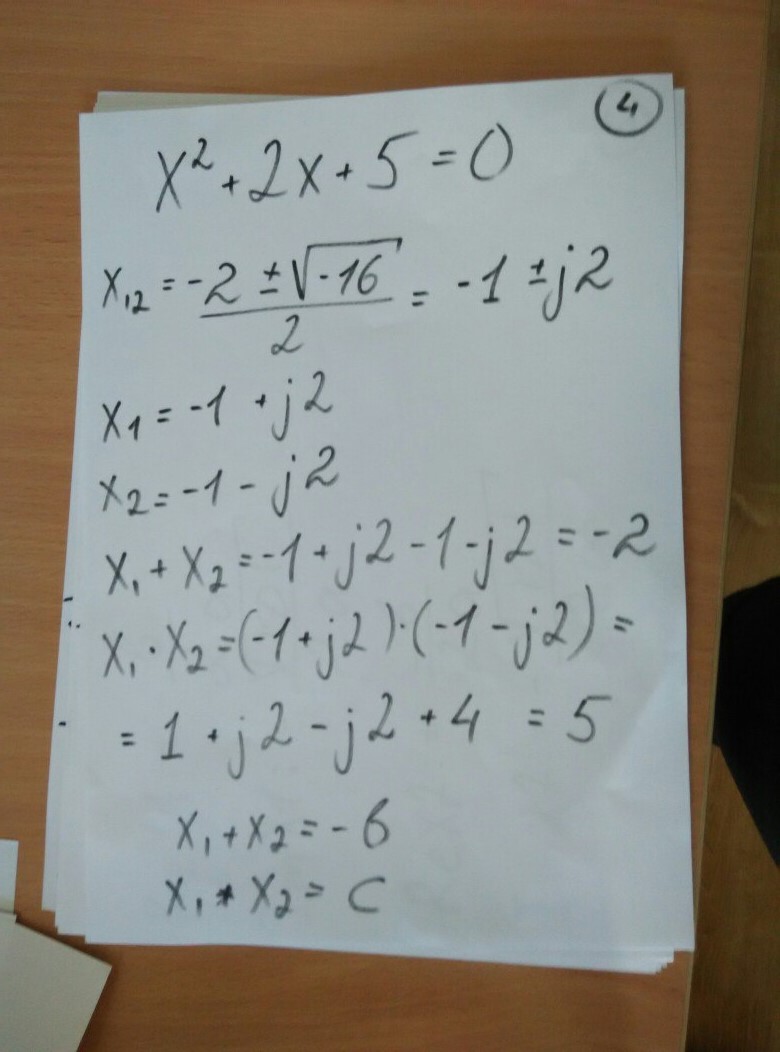 4
x² + 2x + 5 = 0
x₁₂ = -2 ± √-16 / 2 = -1 ± j2
x₁ = -1 + j2
x₂ = -1 - j2
x₁ + x₂ = -1 + j2 - 1 - j2 = -2
x₁ · x₂ = (-1 + j2) · (-1 - j2) =
= 1 + j2 - j2 + 4 = 5
x₁ + x₂ = - b
x₁ * x₂ = c